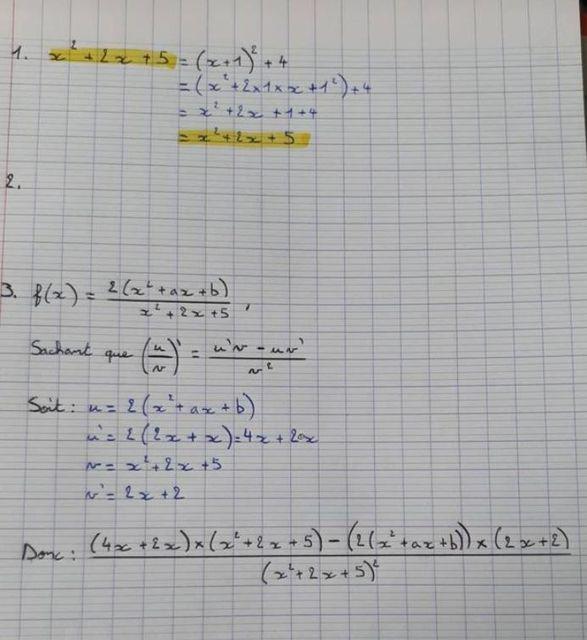 1. x² + 2x + 5 = (x+1)² + 4
= (x² + 2×1×x + 1²) + 4
= x² + 2x + 1 + 4
= x² + 2x + 5
2.
3. f(x) = 2(x² + ax + b) / x² + 2x + 5,
Sachant que (u/v)' = u'v - uv' / v²
Soit : u = 2(x² + ax + b)
u' = 2(2x + x) = 4x + 2x
v = x² + 2x + 5
v' = 2x + 2
Donc : (4x + 2x) × (x² + 2x + 5) - (2(x² + ax + b)) × (2x + 2) / (x² + 2x + 5)²